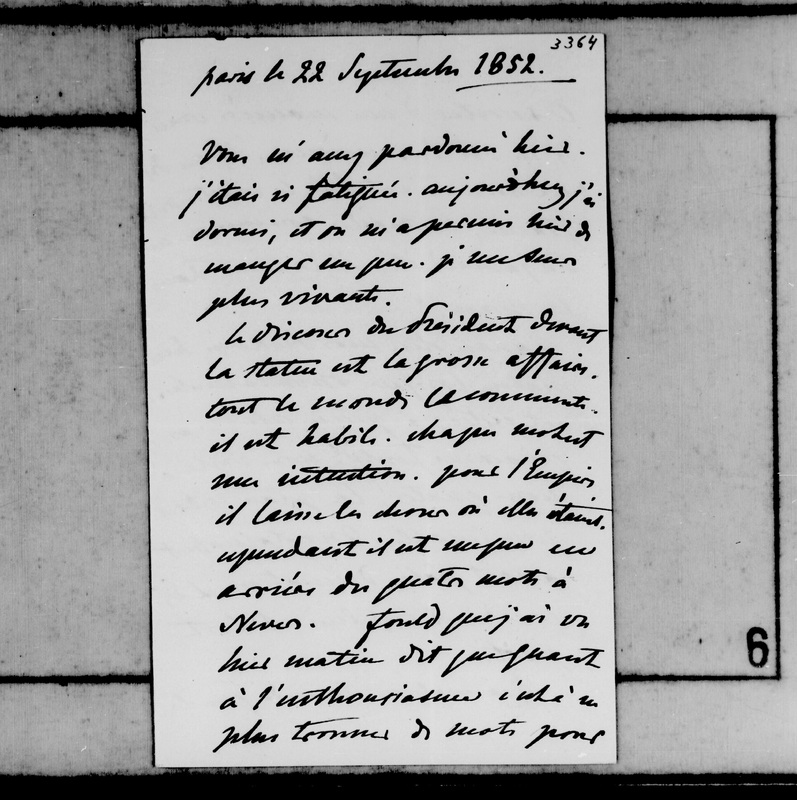 3364
paris le 22 Septembre 1852.
Vous m'avez pardonné hier.
j'étais si fatiguée. aujourd'huy j'ai
dormi, et on m'a permis hier de
manger un peu. je me sens
plus vivante.
le discours du Président devant
la statue est la grosse affaire.
tout le monde le commente.
il est habile. chaque mot est
une intention. pour l'Empire
il laisse les choses où elles étaient.
cependant il est un peu en
arrière des quatre mots à
Nevers. Fould que j'ai vu
hier matin dit que quant
à l'enthousiasme c'est à ne
plus trouver de mots pour
6